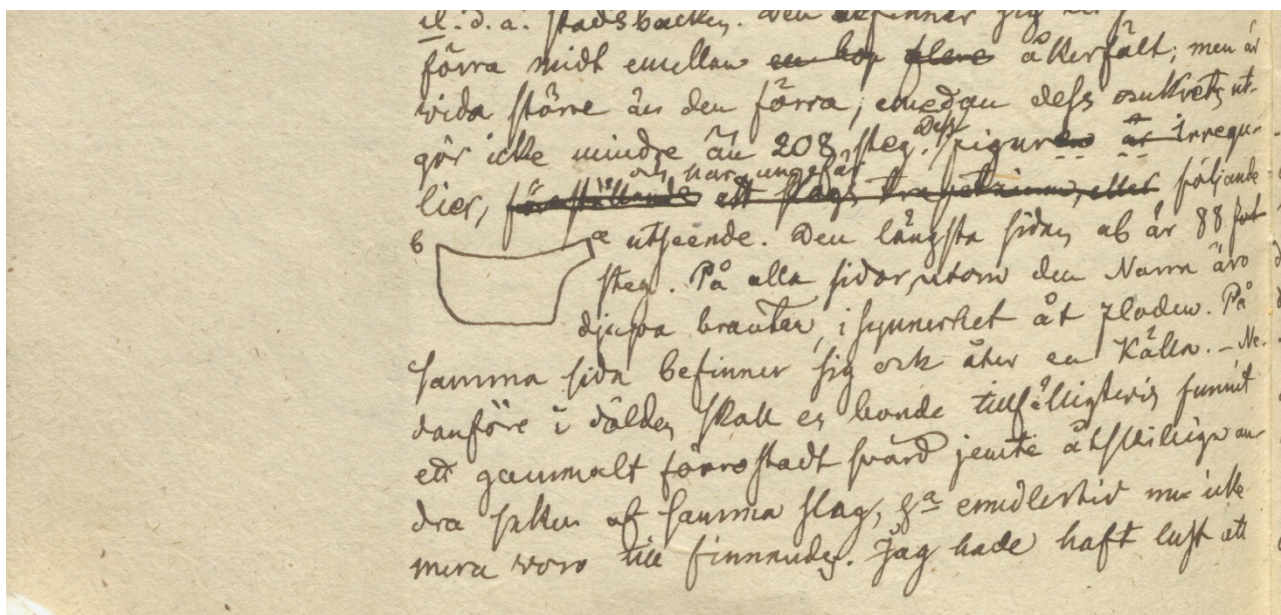 il. d. ä. stadsbacken. Den befinner sig
förra midt emellan en hop flere åkerfält; men är
vida större än den förra, emedan dess omkrets ut-
gör icke mindre än 208 steg. Dess figuren är irregu-
och har ungefär
lier, föreställande ett slags trapetzium, eller följande
b a utseende. Den längsta sidan ab är 88 fot
steg. På alla sidor, utom den Norra äro
djupa branter, i synnerhet åt floden. På
samma sida befinner sig ock åter en Källa. – Ne-
danföre i dälden skall en bonde tillfälligtvis funnit
ett gammalt förrostadt svärd jemte åtskilliga an-
dra saker af samma slag, emedlertid nu icke
mera voro till finnandes. Jag hade haft lust att